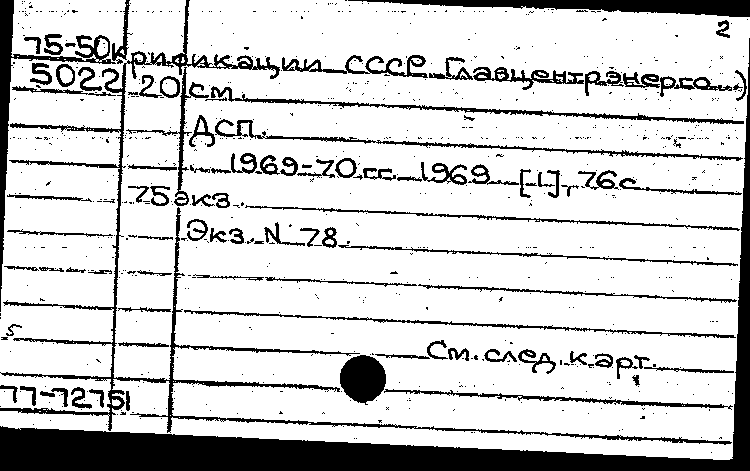 2
75-50крификации СССР. Главцентрэнерго...)
5022 20 см.
ДСП.
1969-70 гг. 1969. [1], 76с.
75экз.
Экз. N 78.
5
См. след. карт.
77-72751